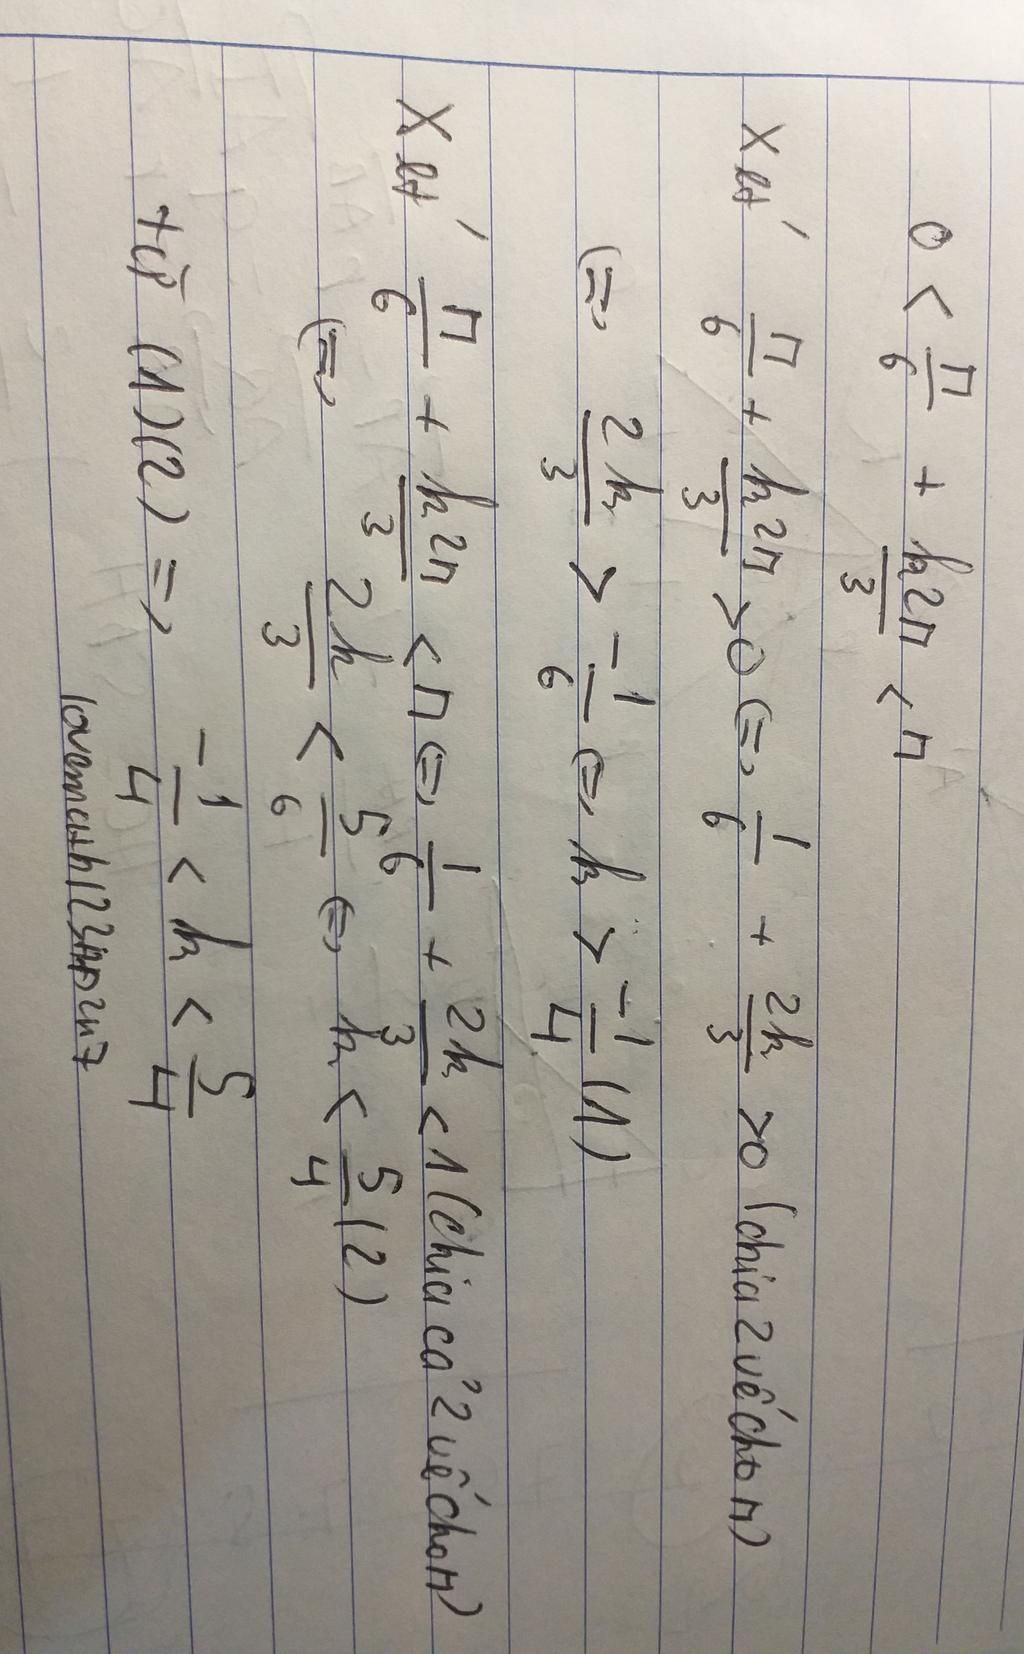 0 < π/6 + k2π/3 < π
Xét π/6 + k2π/3 > 0 (=) 1/6 + 2k/3 > 0 (chia 2 vế cho π)
(=) 2k/3 > -1/6 (=) k > -1/4 (1)
Xét π/6 + k2π/3 < π (=) 1/6 + 2k/3 < 1 (chia cả 2 vế cho π)
(=) 2k/3 < 5/6 (=) k < 5/4 (2)
từ (1)(2) => -1/4 < k < 5/4